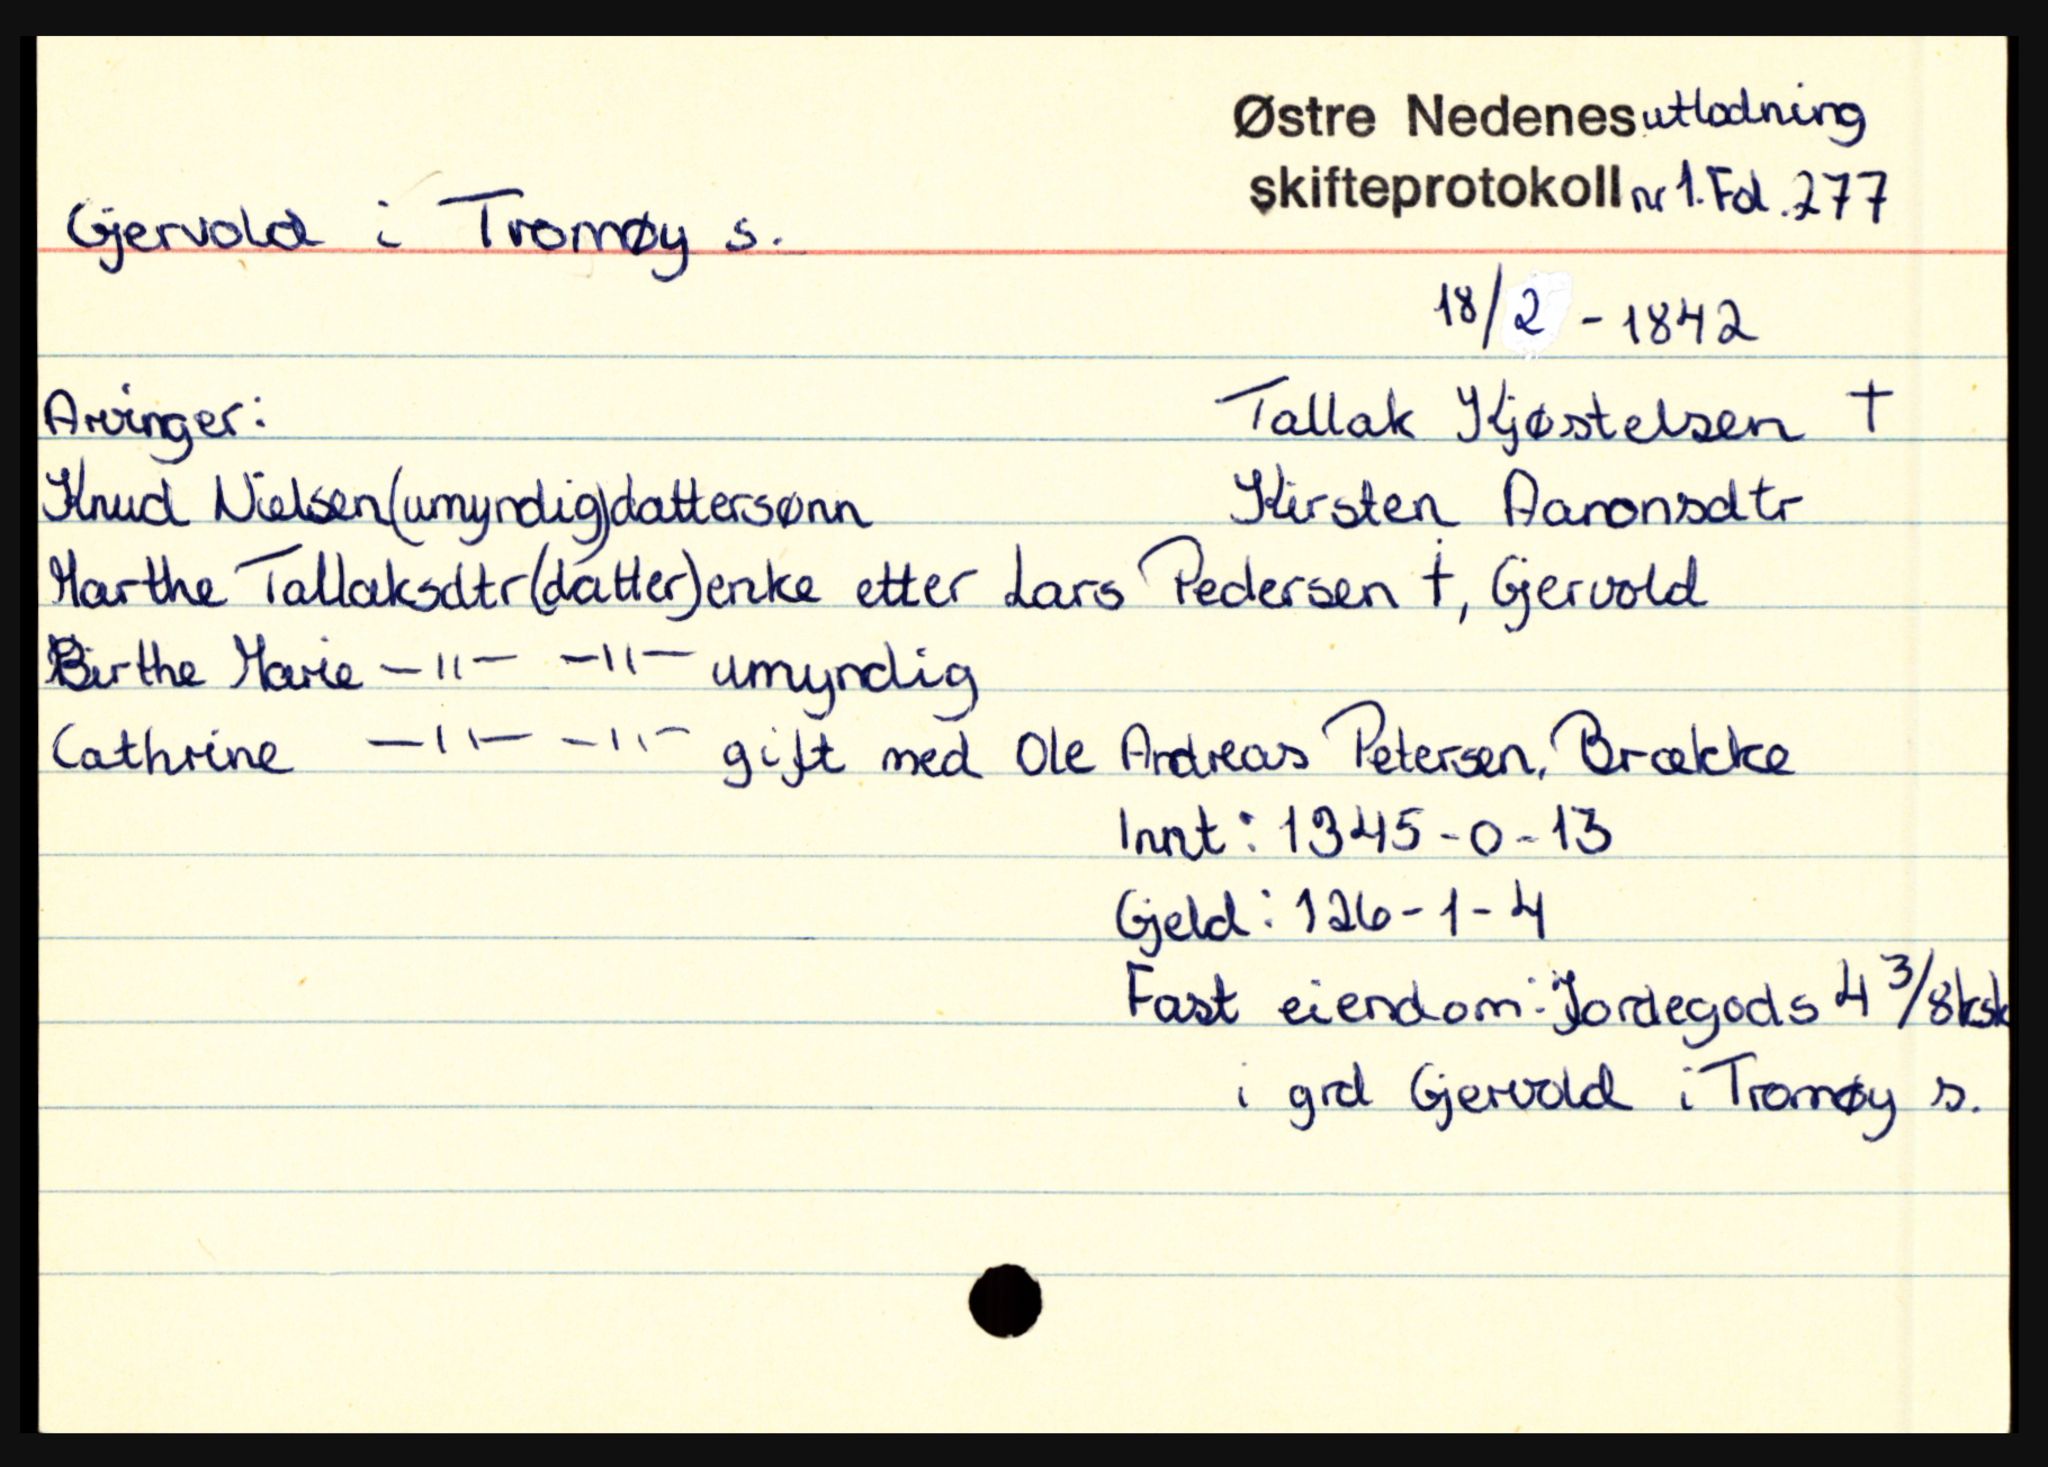 Østre Nedenes utlodning
skifteprotokoll nr 1. Fol. 277
Gjervold i Tromøy s.
18/2 - 1842
Arvinger: Tallak Kjøstelsen †
Knud Nielsen (umyndig) dattersønn Kirsten Aaronsdtr
Marthe Tallaksdtr (datter) enke etter Lars Pedersen †, Gjervold
Birthe Marie -"- -"- umyndig
Cathrine -"- -"- gift med Ole Andreas Petersen, Brække
Innt: 1345-0-13
Gjeld: 126-1-4
Fast eiendom: Jordegods 4 3/8 ksk
i grd Gjervold i Tromøy s.